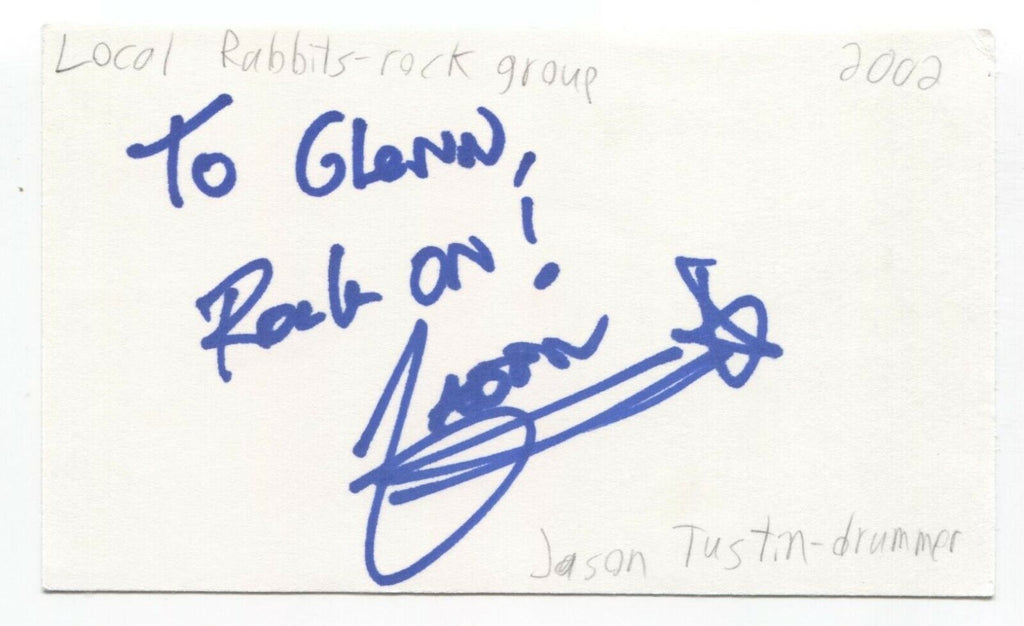 Local Rabbits-rock group 2002
To Glenn,
Rock on!
Jason
Jason Tustin-drummer